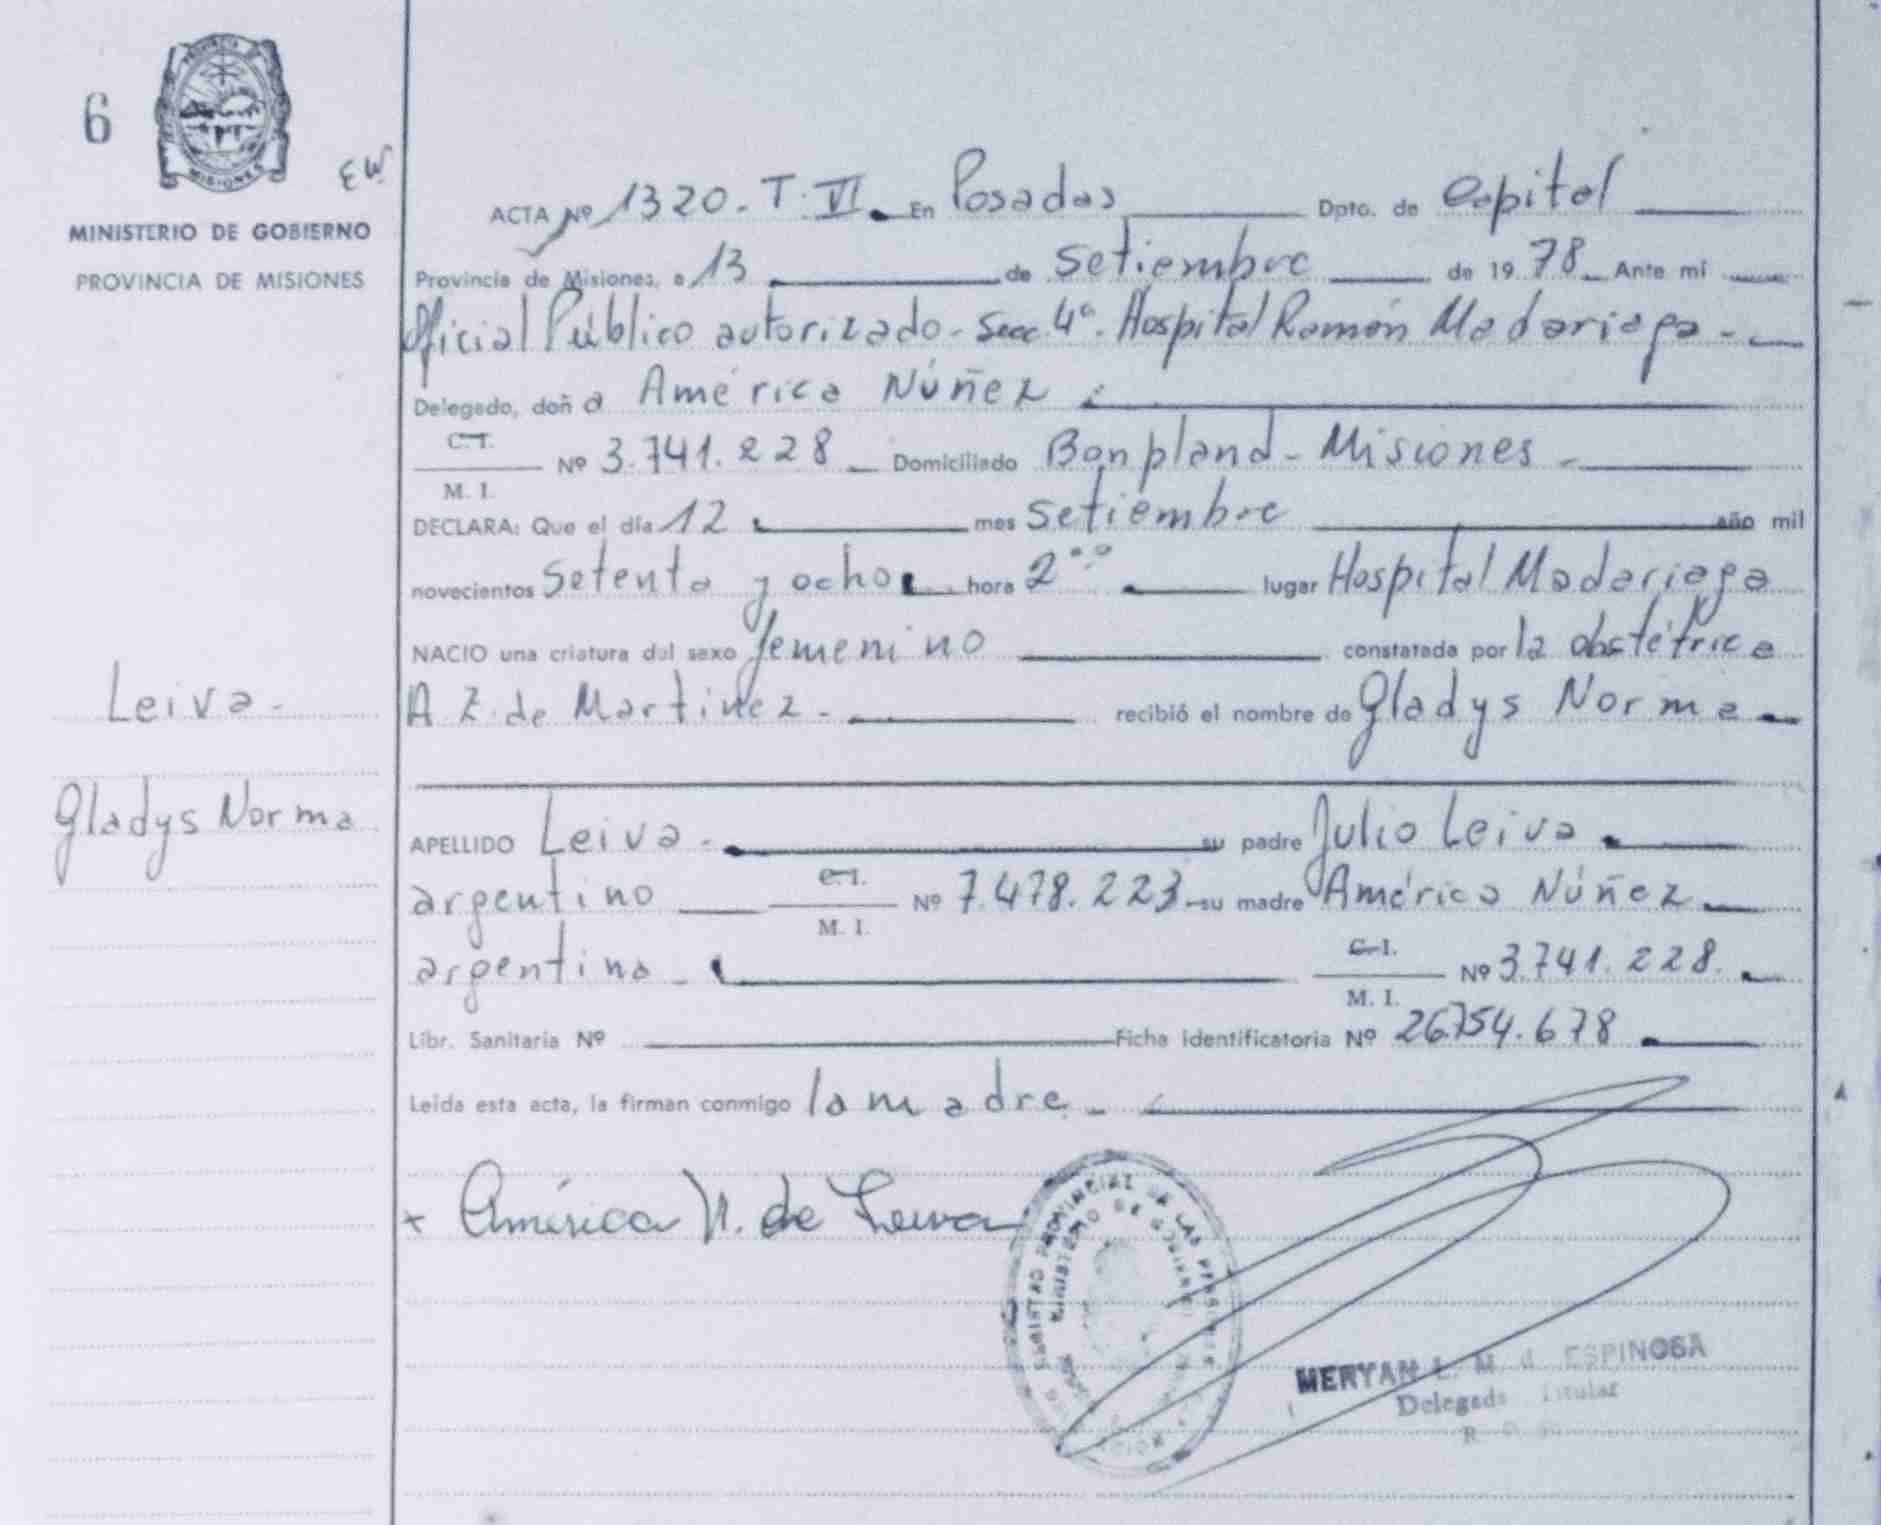 6
PROVINCIA DE
MISIONES
EW
MINISTERIO DE GOBIERNO
PROVINCIA DE MISIONES
ACTA Nº 1320. T. VI. En Posadas Dpto. de Capital
Provincia de Misiones, a 13 de setiembre de 1978 Ante mi
Oficial Público autorizado - Secc 4ª. Hospital Ramón Madariaga -
Delegado, doña América Núñez
C. I. Nº 3.741.228 Domiciliado Bonpland - Misiones -
M. I.
DECLARA: Que el día 12 mes setiembre año mil
novecientos setenta y ocho hora 2ºº lugar Hospital Madariaga
NACIO una criatura del sexo femenino constatada por la obstétrica
Leiva -
A Z. de Martinez - recibió el nombre de Gladys Norma
Gladys Norma
APELLIDO Leiva - su padre Julio Leiva
argentino C. I. Nº 7.478.223 su madre América Núñez
M. I.
argentina - C. I. Nº 3.741.228.
M. I.
Libr. Sanitaria Nº Ficha identificatoria Nº 26.754.678
Leída esta acta, la firman conmigo la madre -
x América N. de Leiva
REGISTRO PROVINCIAL DE LAS PERSONAS
MINISTERIO DE GOBIERNO
MERYAN L. M. d ESPINOSA
Delegada Titular
R.